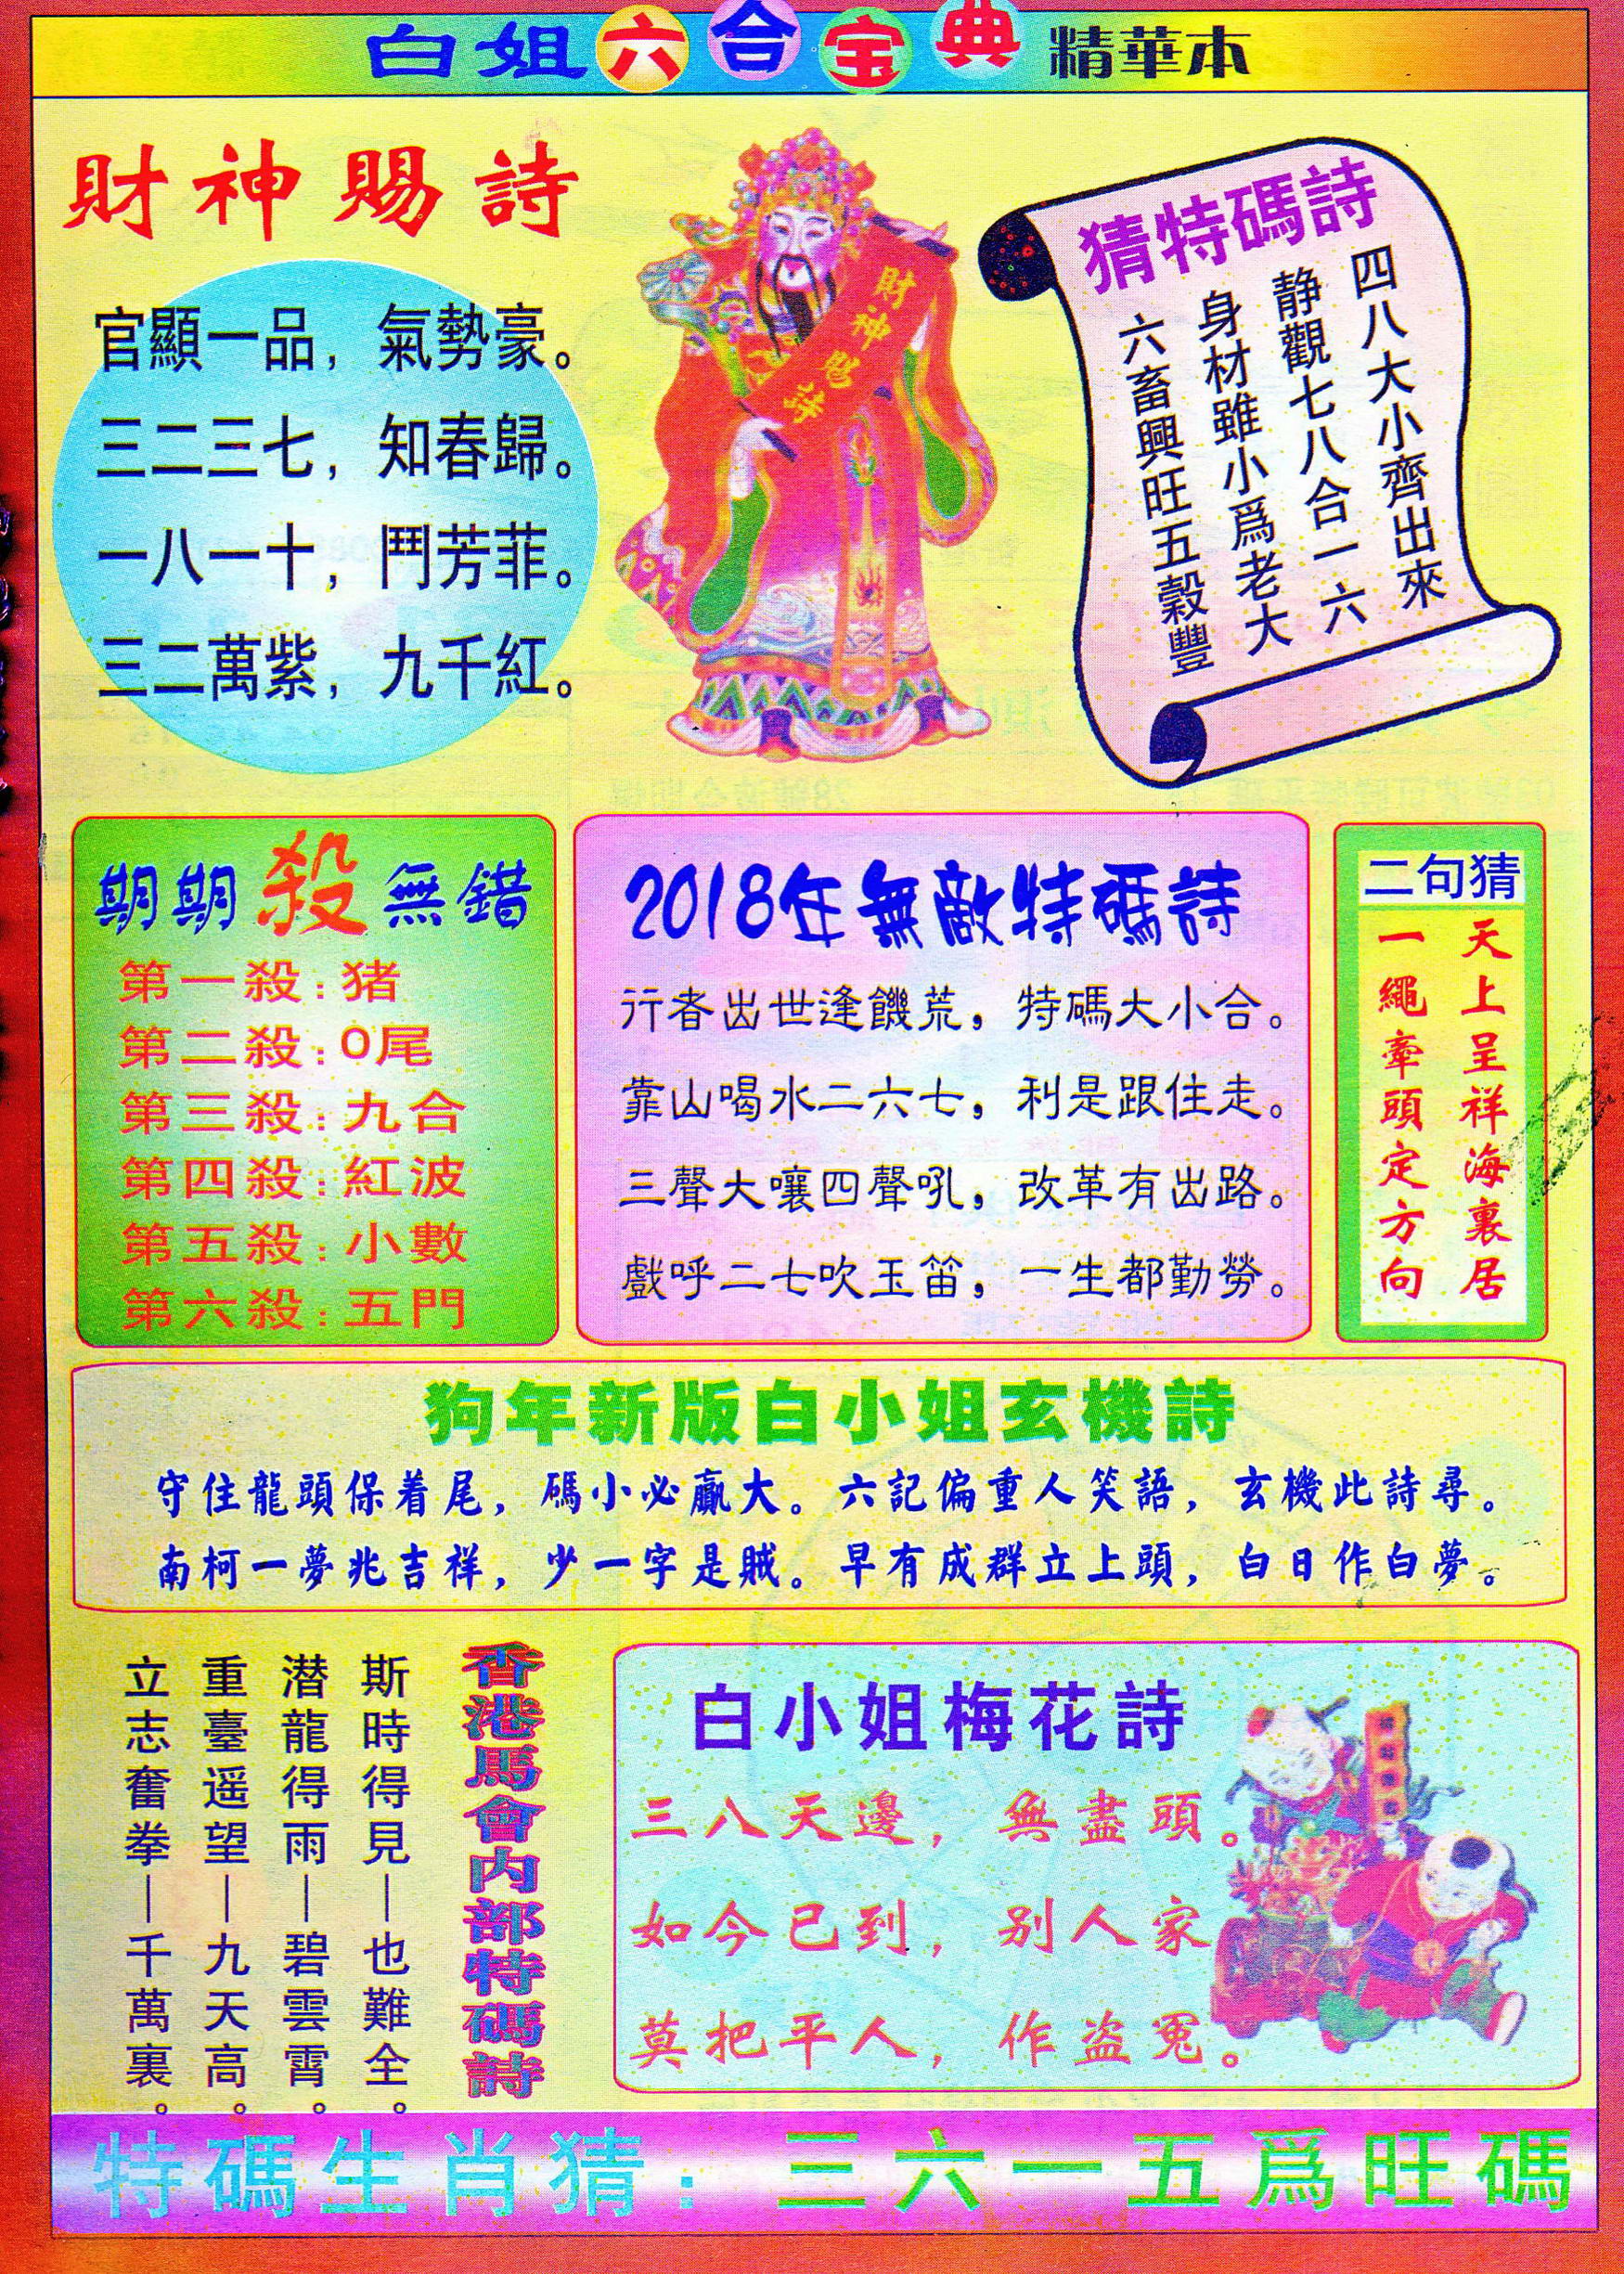 白姐六合宝典精華本
財神賜詩
官顯一品，氣勢豪。
三二三七，知春歸。
一八一十，鬥芳菲。
三二萬紫，九千紅。
財神賜詩
猜特碼詩
四八大小齊出來
静觀七八合一六
身材雖小爲老大
六畜興旺五穀豐
期期殺無錯
第一殺：猪
第二殺：0尾
第三殺：九合
第四殺：紅波
第五殺：小數
第六殺：五門
2018年無敵特碼詩
行者出世逢饑荒，特碼大小合。
靠山喝水二六七，利是跟住走。
三聲大嚷四聲吼，改革有出路。
戲呼二七吹玉笛，一生都勤勞。
二句猜
天上呈祥海裏居
一繩牽頭定方向
狗年新版白小姐玄機詩
守住龍頭保着尾，碼小必贏大。六記偏重人笑語，玄機此詩尋。
南柯一夢兆吉祥，少一字是賊。早有成群立上頭，白日作白夢。
香港馬會内部特碼詩
斯時得見—也難全。
潜龍得雨—碧雲霄。
重臺遥望—九天高。
立志奮拳—千萬裏。
白小姐梅花詩
三八天邊，無盡頭。
如今已到，别人家
莫把平人，作盗冤。
特碼生肖猜：三六一五爲旺碼